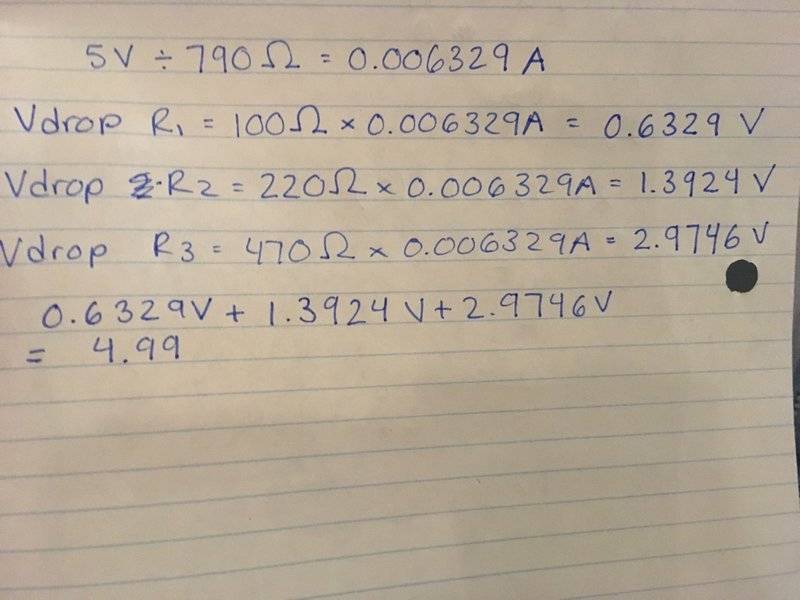 5V ÷ 790Ω = 0.006329A
Vdrop R1 = 100Ω × 0.006329A = 0.6329 V
Vdrop R2 = 220Ω × 0.006329A = 1.3924 V
Vdrop R3 = 470Ω × 0.006329A = 2.9746 V
0.6329V + 1.3924 V + 2.9746V
= 4.99